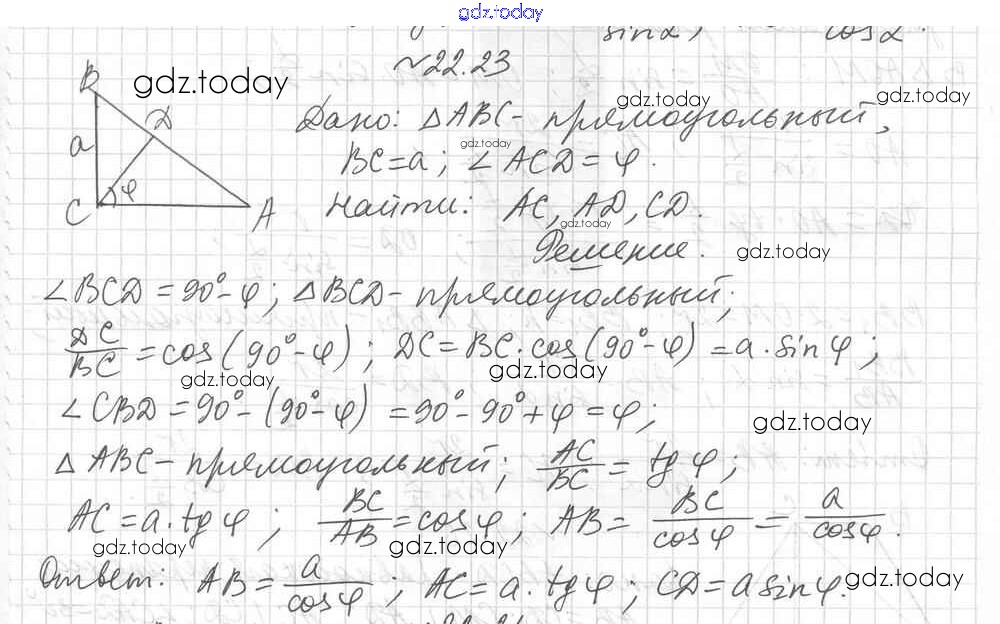 gdz.today
sin α, cos α.
№22.23
B gdz.today
D
a
C φ A
Дано: △ABC - прямоугольный, gdz.today gdz.today
gdz.today
BC = a; ∠ACD = φ.
Найти: AC, AD, CD.
gdz.today
Решение. gdz.today
∠BCD = 90° - φ; △BCD - прямоугольный;
DC/BC = cos(90° - φ); DC = BC · cos(90° - φ) = a · sin φ;
gdz.today gdz.today
∠CBD = 90° - (90° - φ) = 90° - 90° + φ = φ;
gdz.today
△ABC - прямоугольный; AC/BC = tg φ;
AC = a · tg φ; BC/AB = cos φ; AB = BC/cos φ = a/cos φ.
gdz.today gdz.today
Ответ: AB = a/cos φ; AC = a · tg φ; CD = a sin φ. gdz.today